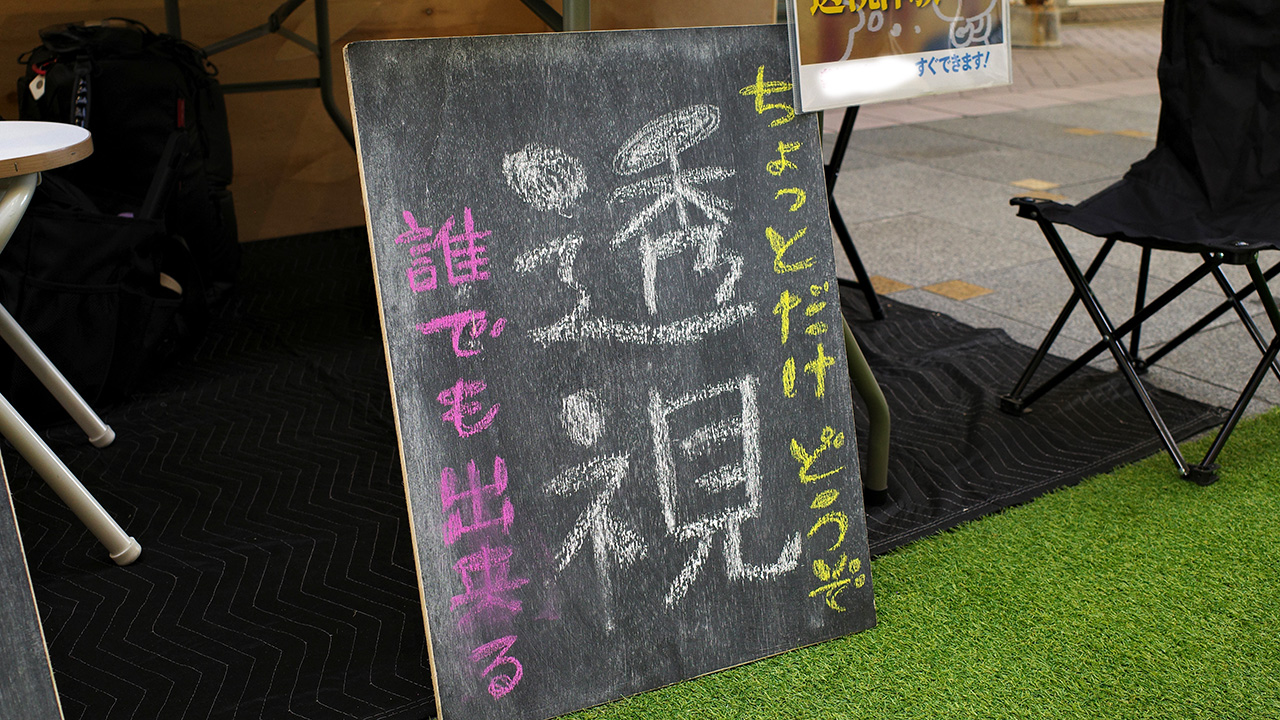 すぐできます!
ちょっとだけ どうぞ
透視
誰でも出来る